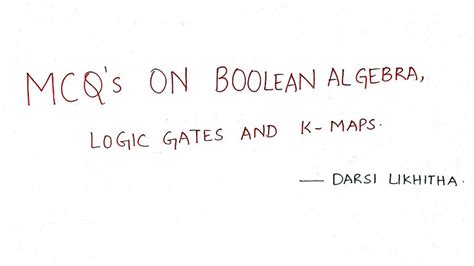 MCQ's ON BOOLEAN ALGEBRA,
LOGIC GATES AND K-MAPS.
— DARSI LIKHITHA.